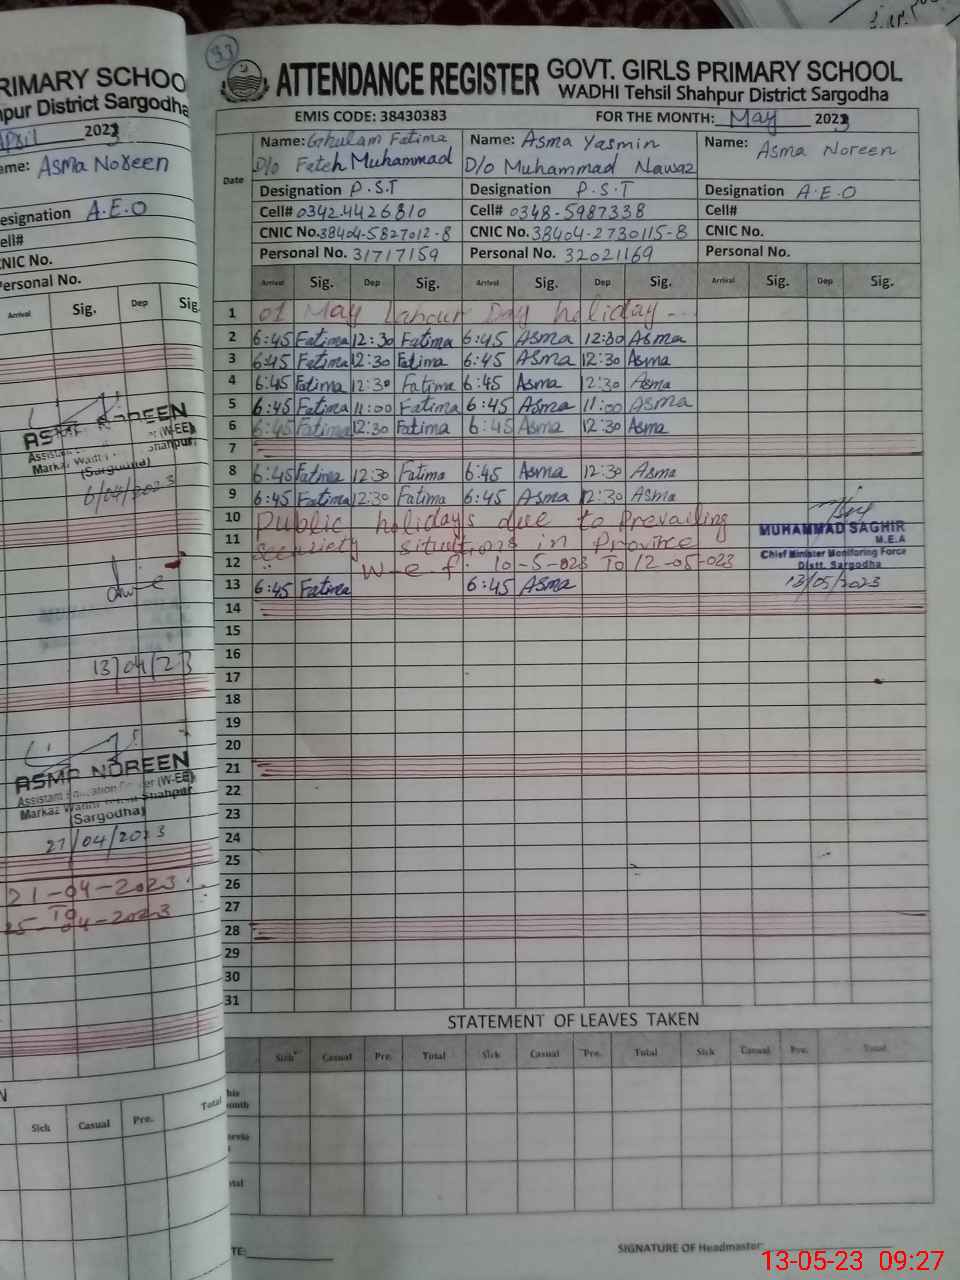 RIMARY SCHOO
hpur District Sargodha
April 2023
ame: Asma Noreen
esignation A.E.O
ell#
CNIC No.
Personal No.
Arrival Sig. Dep Sig.
ASMA NOREEN
(Sargodha)
6/04/2023
13/04/23
ASMA NOREEN
Markaz Wadhi Shahpur
(Sargodha)
27/04/2023
21-04-2023
To
25-04-2023
N
Sick Casual Pre. Total
33
ATTENDANCE REGISTER GOVT. GIRLS PRIMARY SCHOOL
WADHI Tehsil Shahpur District Sargodha
EMIS CODE: 38430383 FOR THE MONTH: May 2023
Date
Name: Ghulam Fatima Name: Asma Yasmin Name: Asma Noreen
D/o Fateh Muhammad D/o Muhammad Nawaz
Designation P.S.T Designation P.S.T Designation A.E.O
Cell# 0342.4426810 Cell# 0348-5987338 Cell#
CNIC No. 38404-5827012-8 CNIC No. 38404-2730115-8 CNIC No.
Personal No. 31717159 Personal No. 32021169 Personal No.
Arrival Sig. Dep Sig. Arrival Sig. Dep Sig. Arrival Sig. Dep Sig.
1 01 May Labour Day holiday ---
2 6:45 Fatima 12:30 Fatima 6:45 Asma 12:30 Asma
3 6:45 Fatima 12:30 Fatima 6:45 Asma 12:30 Asma
4 6:45 Fatima 12:30 Fatima 6:45 Asma 12:30 Asma
5 6:45 Fatima 11:00 Fatima 6:45 Asma 11:00 Asma
6 6:45 Fatima 12:30 Fatima 6:45 Asma 12:30 Asma
7
8 6:45 Fatima 12:30 Fatima 6:45 Asma 12:30 Asma
9 6:45 Fatima 12:30 Fatima 6:45 Asma 12:30 Asma
10 Public holidays due to Prevailing
11 situations in Province
12 w.e.f. 10-5-023 To 12-05-023
13 6:45 Fatima 6:45 Asma
MUHAMMAD SAGHIR
M.E.A
Chief Minister Monitoring Force
Distt. Sargodha
13/05/2023
14
15
16
17
18
19
20
21
22
23
24
25
26
27
28
29
30
31
STATEMENT OF LEAVES TAKEN
Sick Casual Pre. Total Sick Casual Pre. Total Sick Casual Pre. Total
his
onth
tal
TE:
SIGNATURE OF Headmaster:
13-05-23 09:27